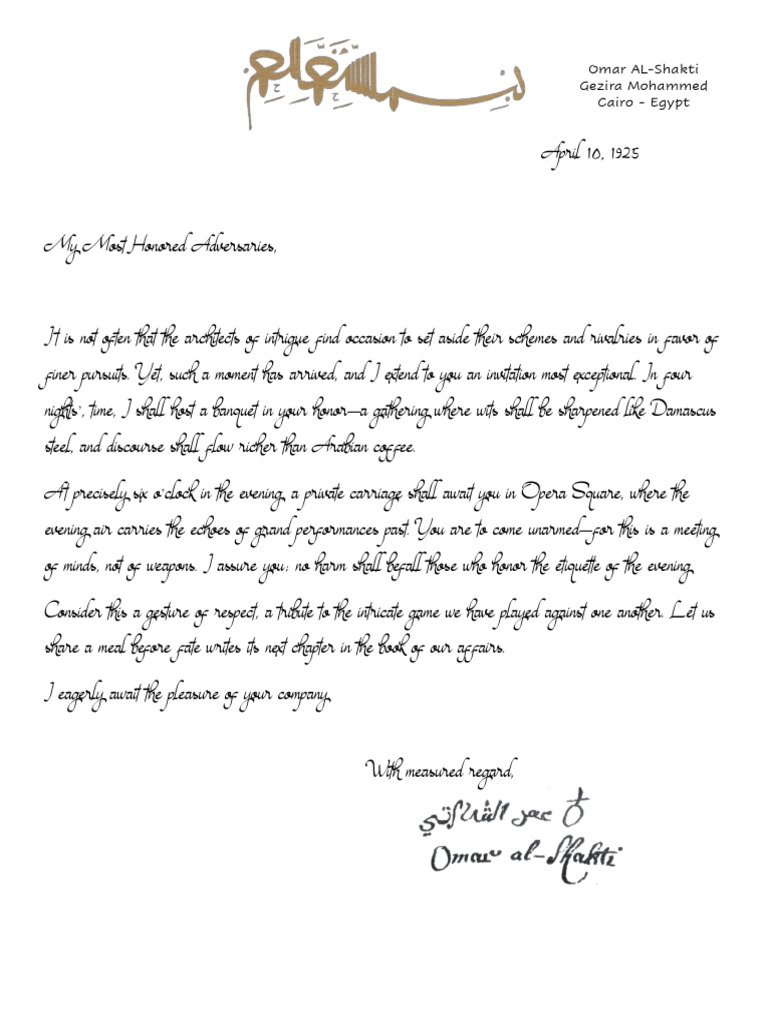 Omar AL-Shakti
Gezira Mohammed
Cairo - Egypt
April 10, 1925
My Most Honored Adversaries,
It is not often that the architects of intrigue find occasion to set aside their schemes and rivalries in favor of
finer pursuits. Yet, such a moment has arrived, and I extend to you an invitation most exceptional. In four
nights', time, I shall host a banquet in your honor—a gathering where wits shall be sharpened like Damascus
steel, and discourse shall flow richer than Arabian coffee.
At precisely six o'clock in the evening a private carriage shall await you in Opera Square, where the
evening air carries the echoes of grand performances past. You are to come unarmed—for this is a meeting
of minds, not of weapons. I assure you; no harm shall befall those who honor the etiquette of the evening
Consider this a gesture of respect, a tribute to the intricate game we have played against one another. Let us
share a meal before fate writes its next chapter in the book of our affairs.
I eagerly await the pleasure of your company
With measured regard,
عمر الشاكتي
Omar al-Shakti